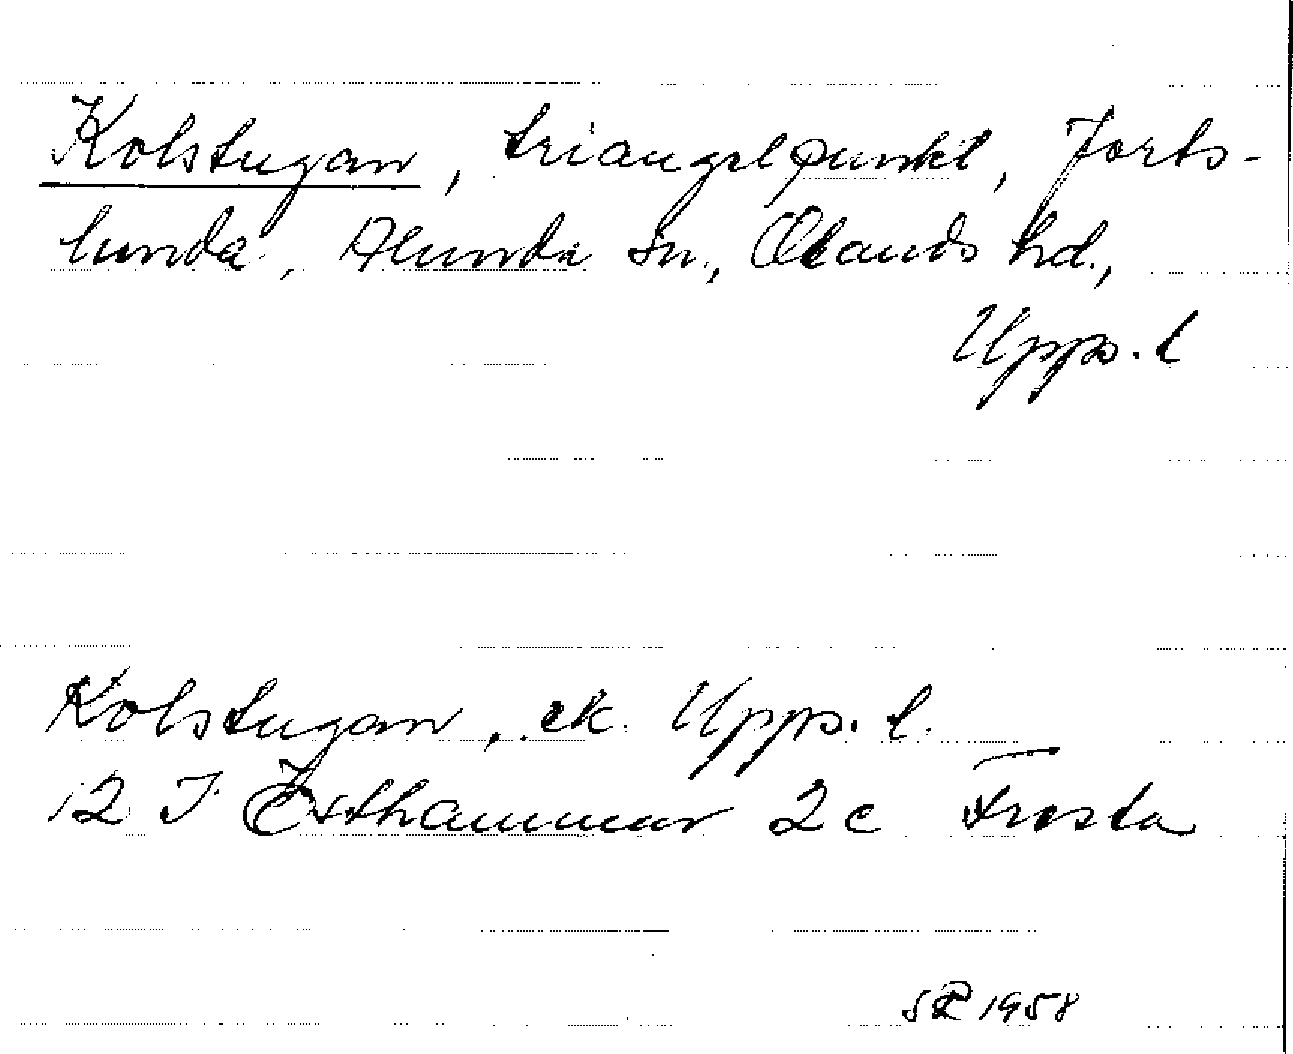 Kolstugan, triangelpunkt, Jorts-
lunda, Alunda sn., Olands hd.,
Upps. l
Kolstugan, ek. Upps. l.
12 I Östhammar 2 c Frosta
SR 1958